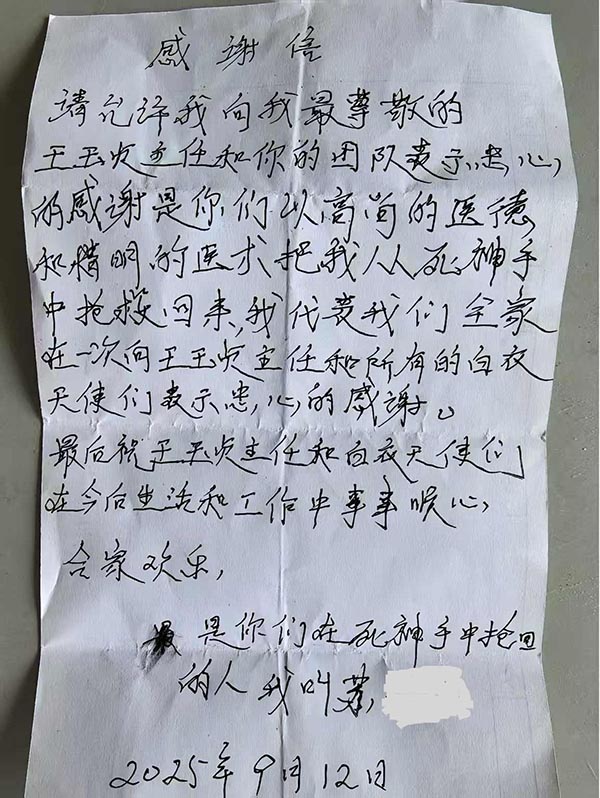 感谢信
请允许我向我最尊敬的
王玉贞主任和你的团队表示忠心
的感谢是你们以高尚的医德
和精明的医术把我从死神手
中抢救回来,我代表我们全家
在一次向王玉贞主任和所有的白衣
天使们表示忠心的感谢。
最后祝王玉贞主任和白衣天使们
在今后生活和工作中事事顺心,
合家欢乐,
是你们在死神手中抢回
的人我叫苏
2025年9月12日